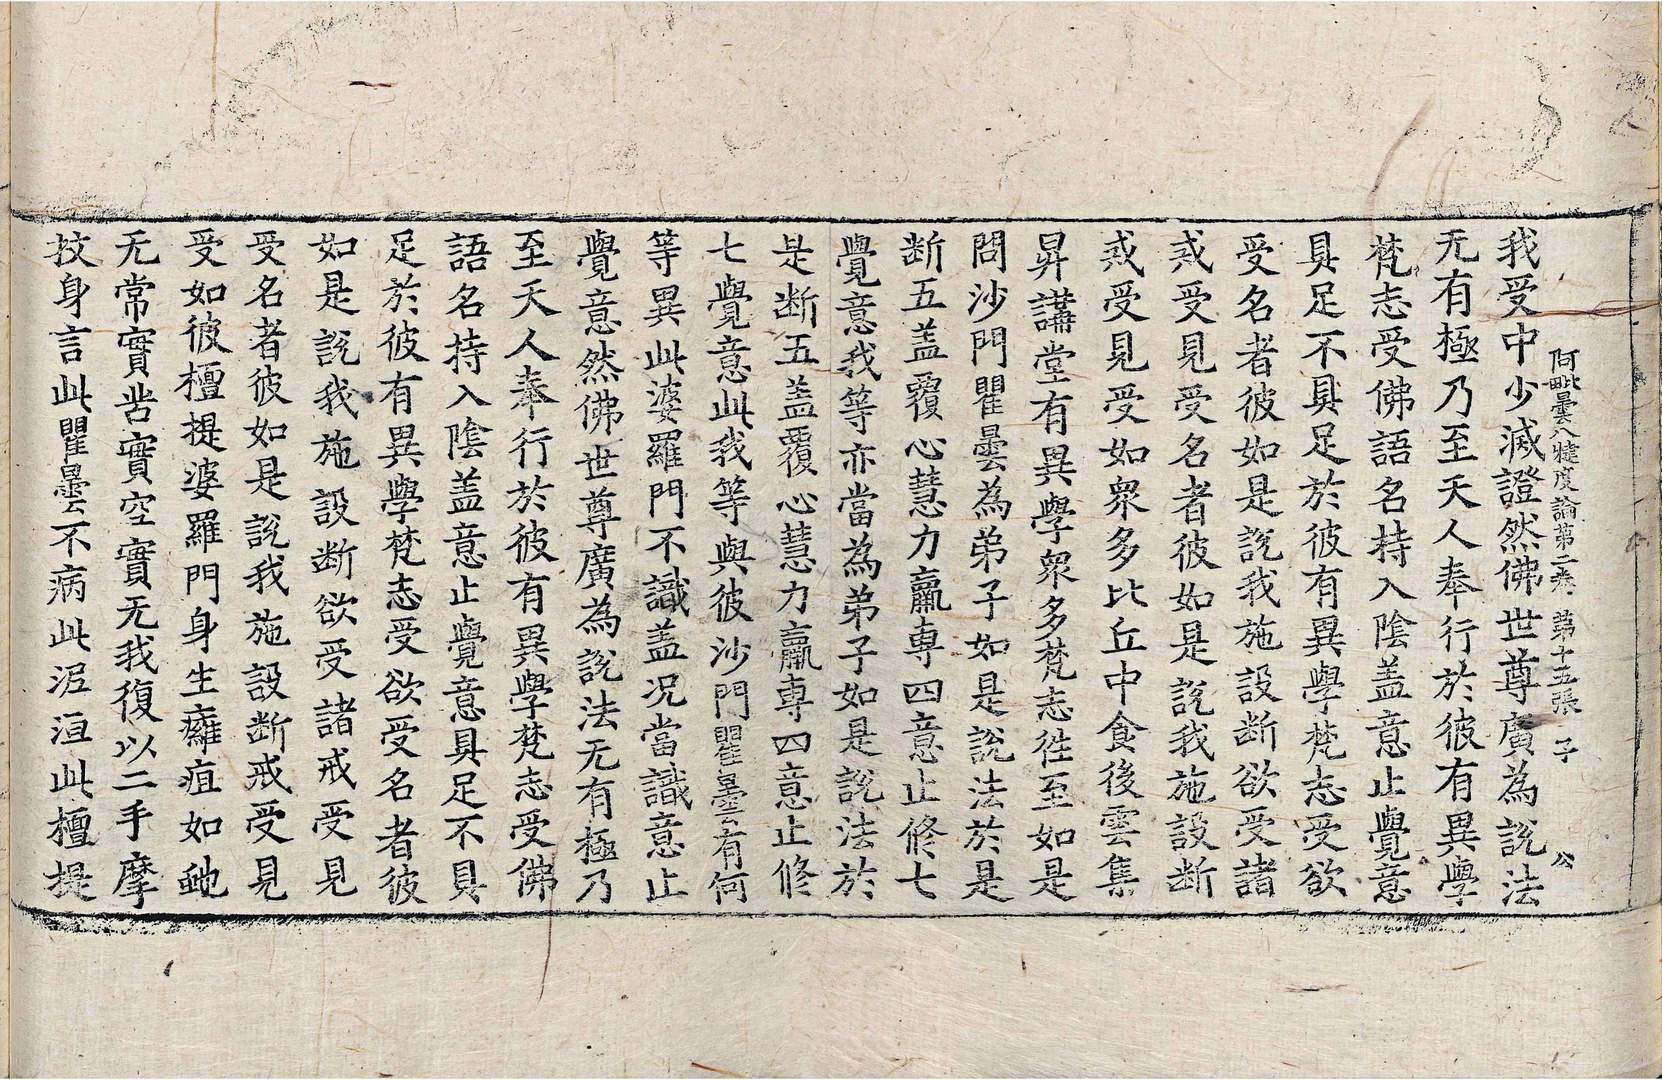 阿毗曇八犍度論第二卷 第十五張 子 公
我受中少滅證然佛世尊廣為說法
无有極乃至天人奉行於彼有異學
梵志受佛語名持入陰盖意止覺意
具足不具足於彼有異學梵志受欲
受名者彼如是說我施設断欲受諸
戒受見受名者彼如是說我施設断
戒受見受如眾多比丘中食後雲集
昇講堂有異學眾多梵志徃至如是
問沙門瞿曇為弟子如是說法於是
断五盖覆心慧力羸専四意止修七
覺意我等亦當為弟子如是說法於
是断五盖覆心慧力羸専四意止修
七覺意此我等與彼沙門瞿曇有何
等異此婆羅門不識盖況當識意止
覺意然佛世尊廣為說法无有極乃
至天人奉行於彼有異學梵志受佛
語名持入陰盖意止覺意具足不具
足於彼有異學梵志受欲受名者彼
如是說我施設断欲受諸戒受見
受名者彼如是說我施設断戒受見
受如彼檀提婆羅門身生癰疽如虵
无常實苦實空實无我復以二手摩
抆身言此瞿曇不病此泥洹此檀提